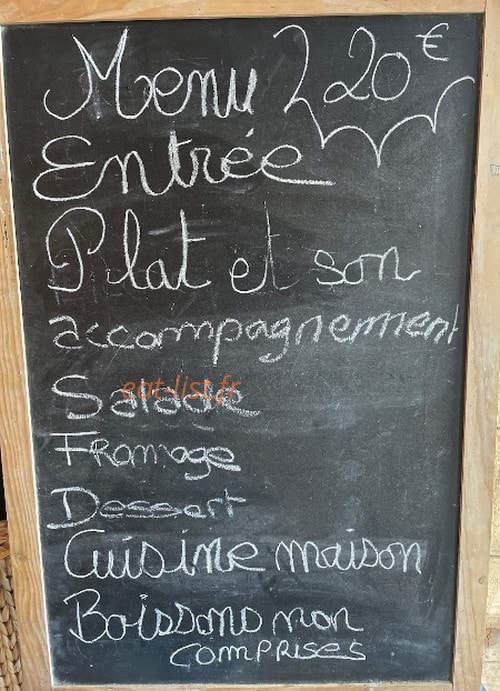 Menu 20€
Entrée
Plat et son
accompagnement
Salade
eat-list.fr
Fromage
Dessert
Cuisine maison
Boissons non
comprises